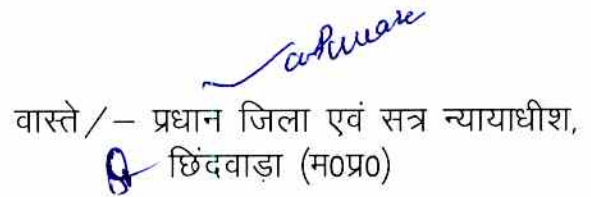 वास्ते/– प्रधान जिला एवं सत्र न्यायाधीश,
छिंदवाड़ा (म0प्र0)